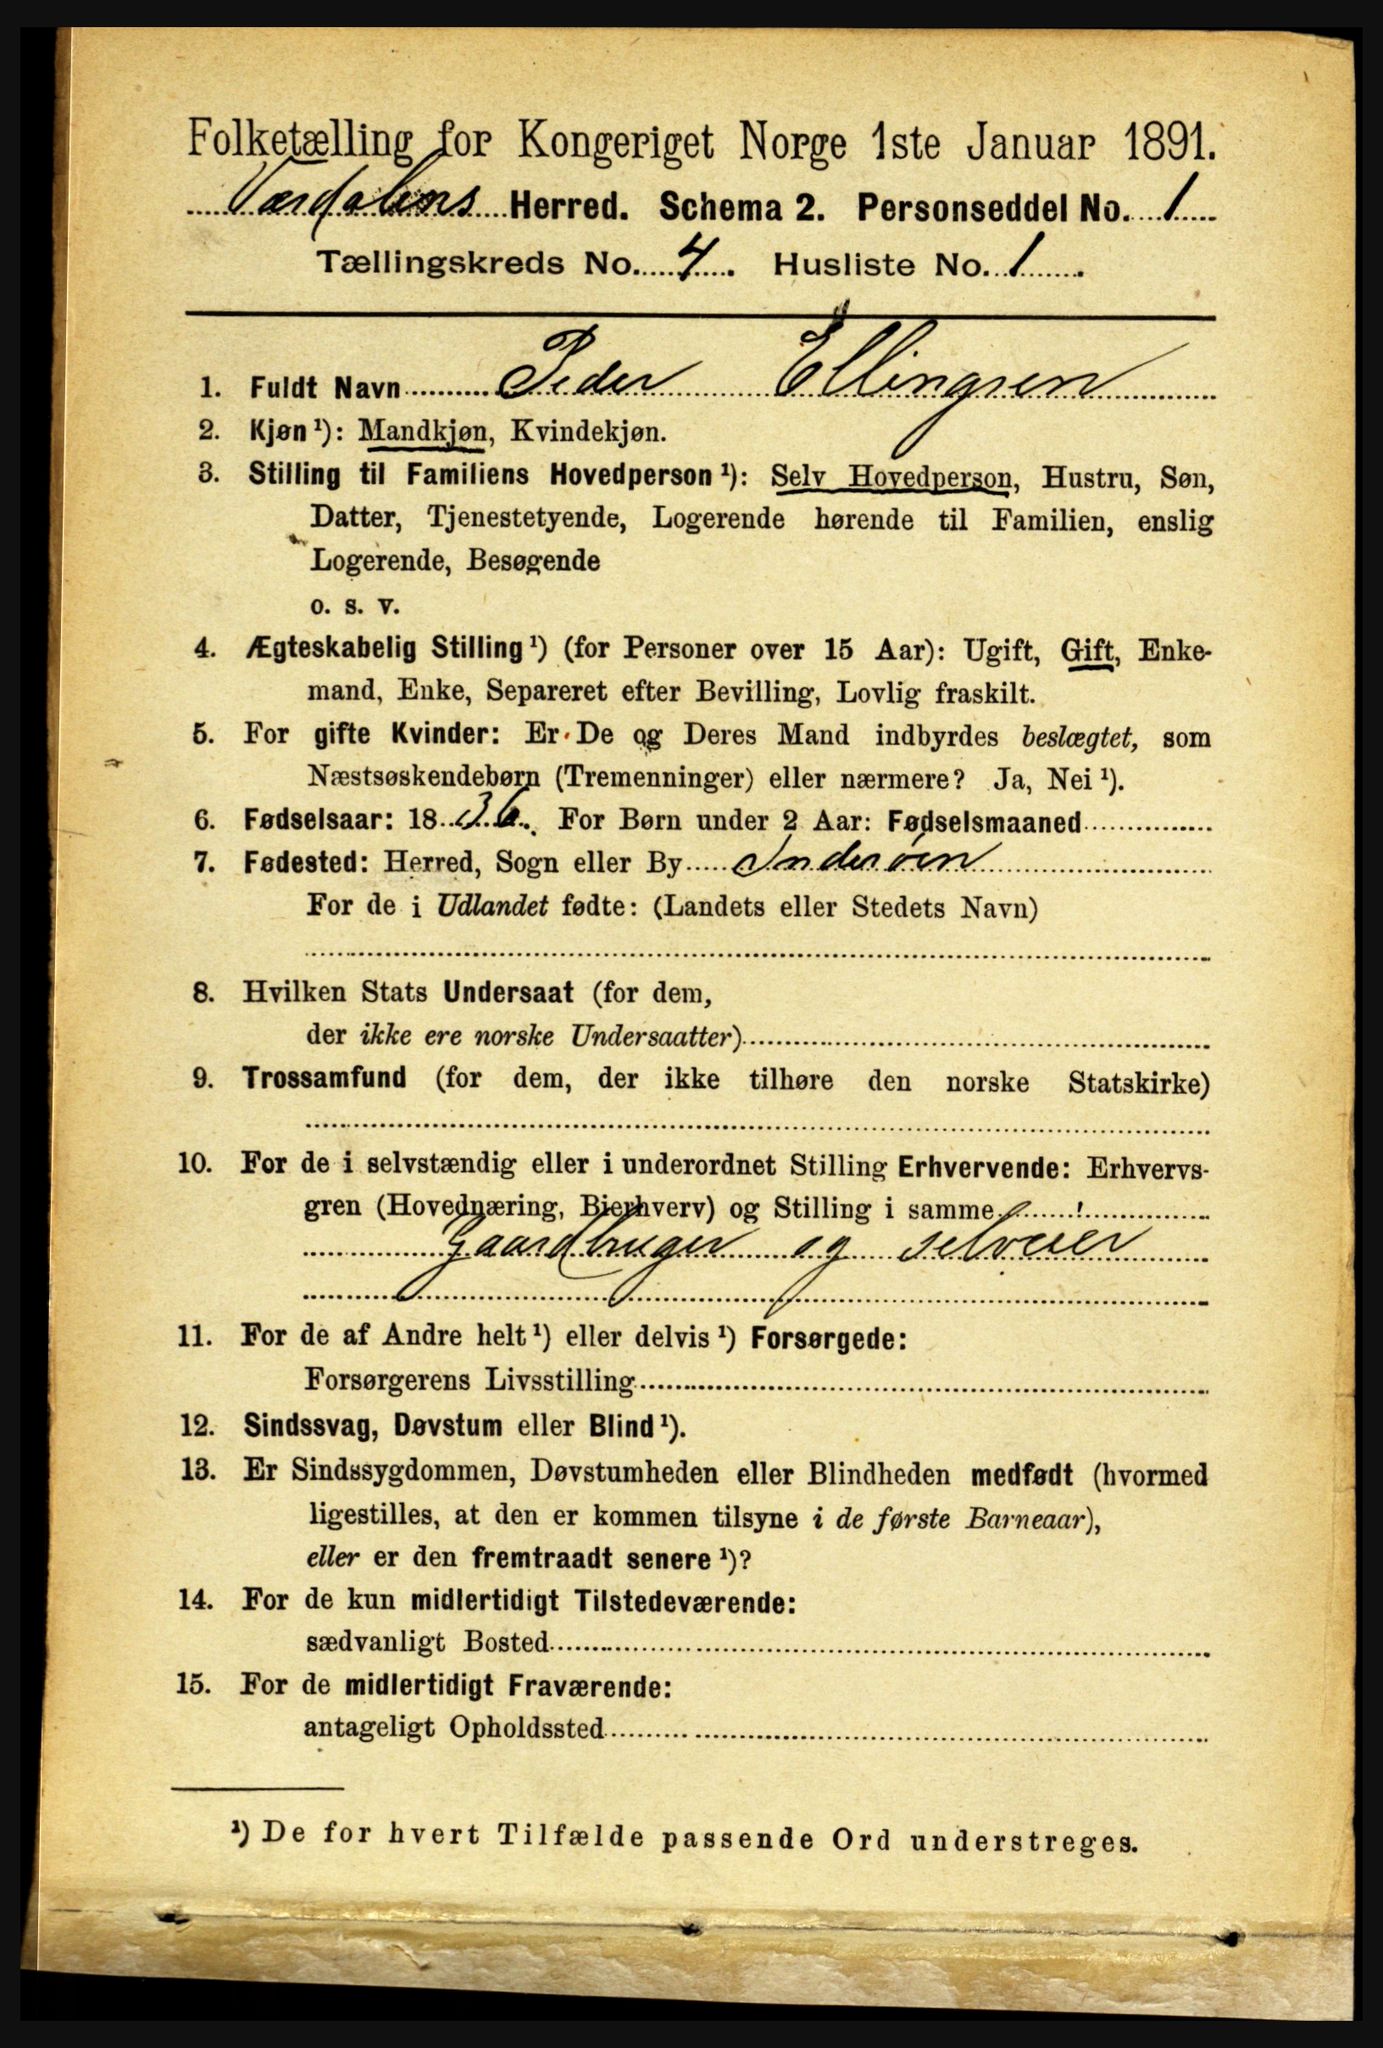 Folketælling for Kongeriget Norge 1ste Januar 1891.
Værdalens Herred. Schema 2. Personseddel No. 1
Tællingskreds No. 4. Husliste No. 1.
1. Fuldt Navn Peder Ellingsen
2. Kjøn¹): Mandkjøn, Kvindekjøn.
3. Stilling til Familiens Hovedperson¹): Selv Hovedperson, Hustru, Søn,
Datter, Tjenestetyende, Logerende hørende til Familien, enslig
Logerende, Besøgende
o. s. v.
4. Ægteskabelig Stilling¹) (for Personer over 15 Aar): Ugift, Gift, Enke-
mand, Enke, Separeret efter Bevilling, Lovlig fraskilt.
5. For gifte Kvinder: Er De og Deres Mand indbyrdes beslægtet, som
Næstsøskendebørn (Tremenninger) eller nærmere? Ja, Nei¹).
6. Fødselsaar: 1836. For Børn under 2 Aar: Fødselsmaaned
7. Fødested: Herred, Sogn eller By Inderøen
For de i Udlandet fødte: (Landets eller Stedets Navn)
8. Hvilken Stats Undersaat (for dem,
der ikke ere norske Undersaatter)
9. Trossamfund (for dem, der ikke tilhøre den norske Statskirke)
10. For de i selvstændig eller i underordnet Stilling Erhvervende: Erhvervs-
gren (Hovednæring, Bierhverv) og Stilling i samme
Gaardbruger og selveier
11. For de af Andre helt¹) eller delvis¹) Forsørgede:
Forsørgerens Livsstilling
12. Sindssvag, Døvstum eller Blind¹).
13. Er Sindssygdommen, Døvstumheden eller Blindheden medfødt (hvormed
ligestilles, at den er kommen tilsyne i de første Barneaar),
eller er den fremtraadt senere¹)?
14. For de kun midlertidigt Tilstedeværende:
sædvanligt Bosted
15. For de midlertidigt Fraværende:
antageligt Opholdssted
¹) De for hvert Tilfælde passende Ord understreges.